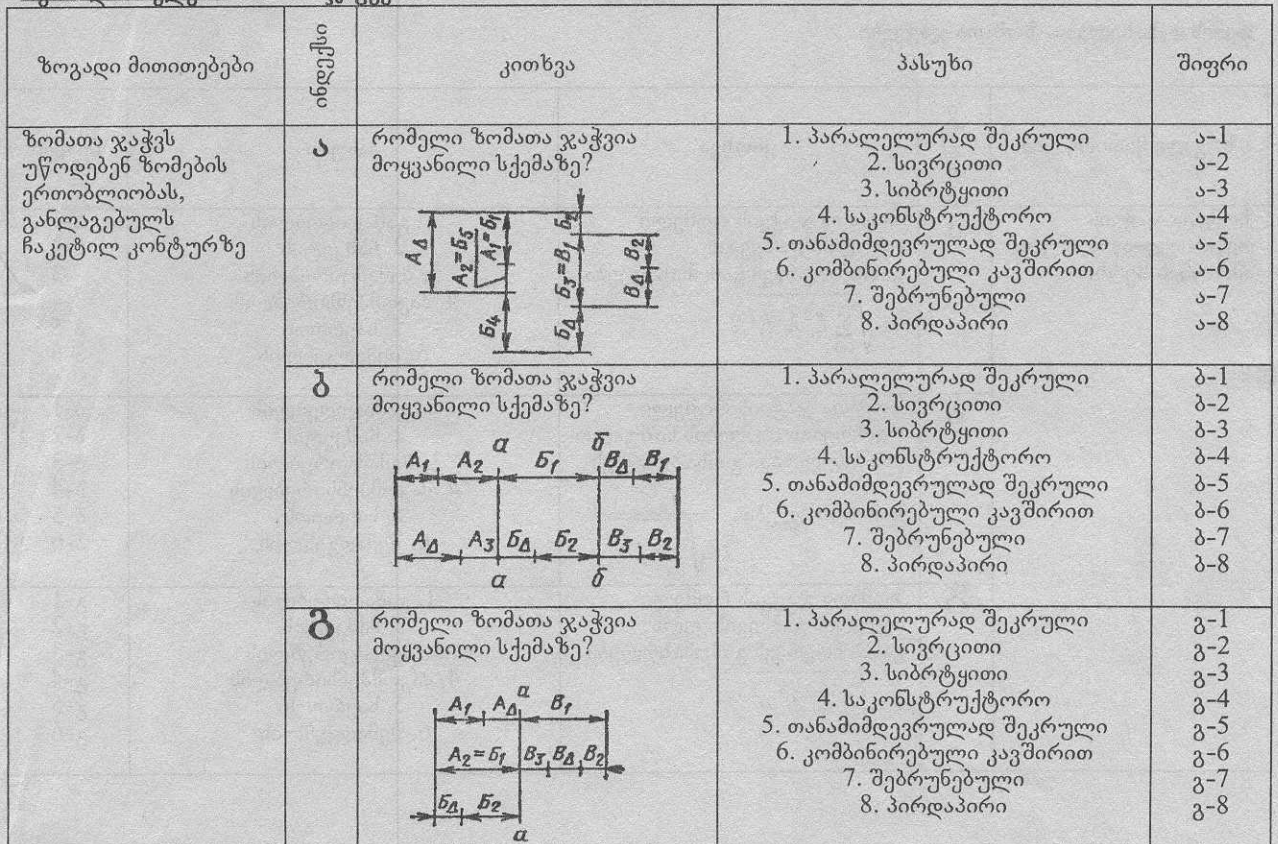 ზოგადი მითითებები
ინდექსი
კითხვა
პასუხი
შიფრი
ზომათა ჯაჭვს
უწოდებენ ზომების
ერთობლიობას,
განლაგებულს
ჩაკეტილ კონტურზე
ა
რომელი ზომათა ჯაჭვია
მოყვანილი სქემაზე?
АΔ
А2=Б5
А1=Б1
Б2
Б3=В1
В2
ВΔ
Б4
БΔ
1. პარალელურად შეკრული
ა-1
2. სივრცითი
ა-2
3. სიბრტყითი
ა-3
4. საკონსტრუქტორო
ა-4
5. თანამიმდევრულად შეკრული
ა-5
6. კომბინირებული კავშირით
ა-6
7. შებრუნებული
ა-7
8. პირდაპირი
ა-8
ბ
რომელი ზომათა ჯაჭვია
მოყვანილი სქემაზე?
а б
А1 А2 Б1 ВΔ В1
АΔ А3 БΔ Б2 В3 В2
а б
1. პარალელურად შეკრული
ბ-1
2. სივრცითი
ბ-2
3. სიბრტყითი
ბ-3
4. საკონსტრუქტორო
ბ-4
5. თანამიმდევრულად შეკრული
ბ-5
6. კომბინირებული კავშირით
ბ-6
7. შებრუნებული
ბ-7
8. პირდაპირი
ბ-8
გ
რომელი ზომათა ჯაჭვია
მოყვანილი სქემაზე?
а
А1 АΔ В1
А2=Б1 В3 ВΔ В2
БΔ Б2
а
1. პარალელურად შეკრული
გ-1
2. სივრცითი
გ-2
3. სიბრტყითი
გ-3
4. საკონსტრუქტორო
გ-4
5. თანამიმდევრულად შეკრული
გ-5
6. კომბინირებული კავშირით
გ-6
7. შებრუნებული
გ-7
8. პირდაპირი
გ-8